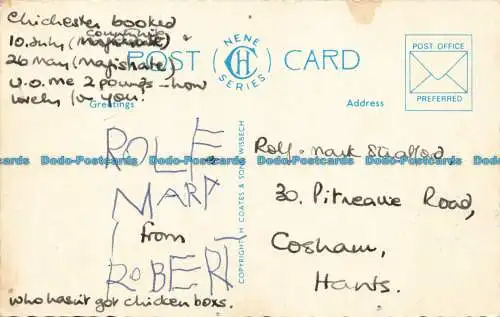 Chichester booked
10. July (
26 May (Magistrate)
U.O. me 2 pounds - how
lucky for you!
POST CARD
NENE
CH
SERIES
POST OFFICE
PREFERRED
Greetings
Address
ROLF
MARK
from
ROBERT
who hasn't got chicken boxs.
COPYRIGHT, H. COATES & SON, WISBECH
Rolf - Mark Stratford,
30. Pitreavie Road,
Cosham,
Hants.
Dodo-Postcards Dodo-Postcards Dodo-Postcards Dodo-Postcards Dodo-Postcards Dodo-Postcards